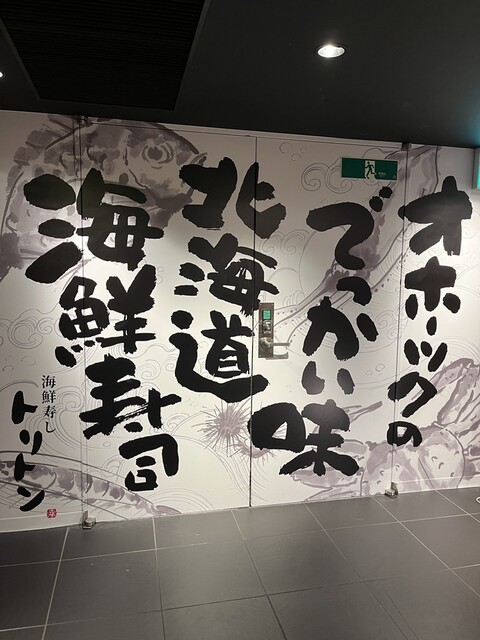 オホーツクの
でっかい味
北海道
海鮮寿司
海鮮寿し
トリトン